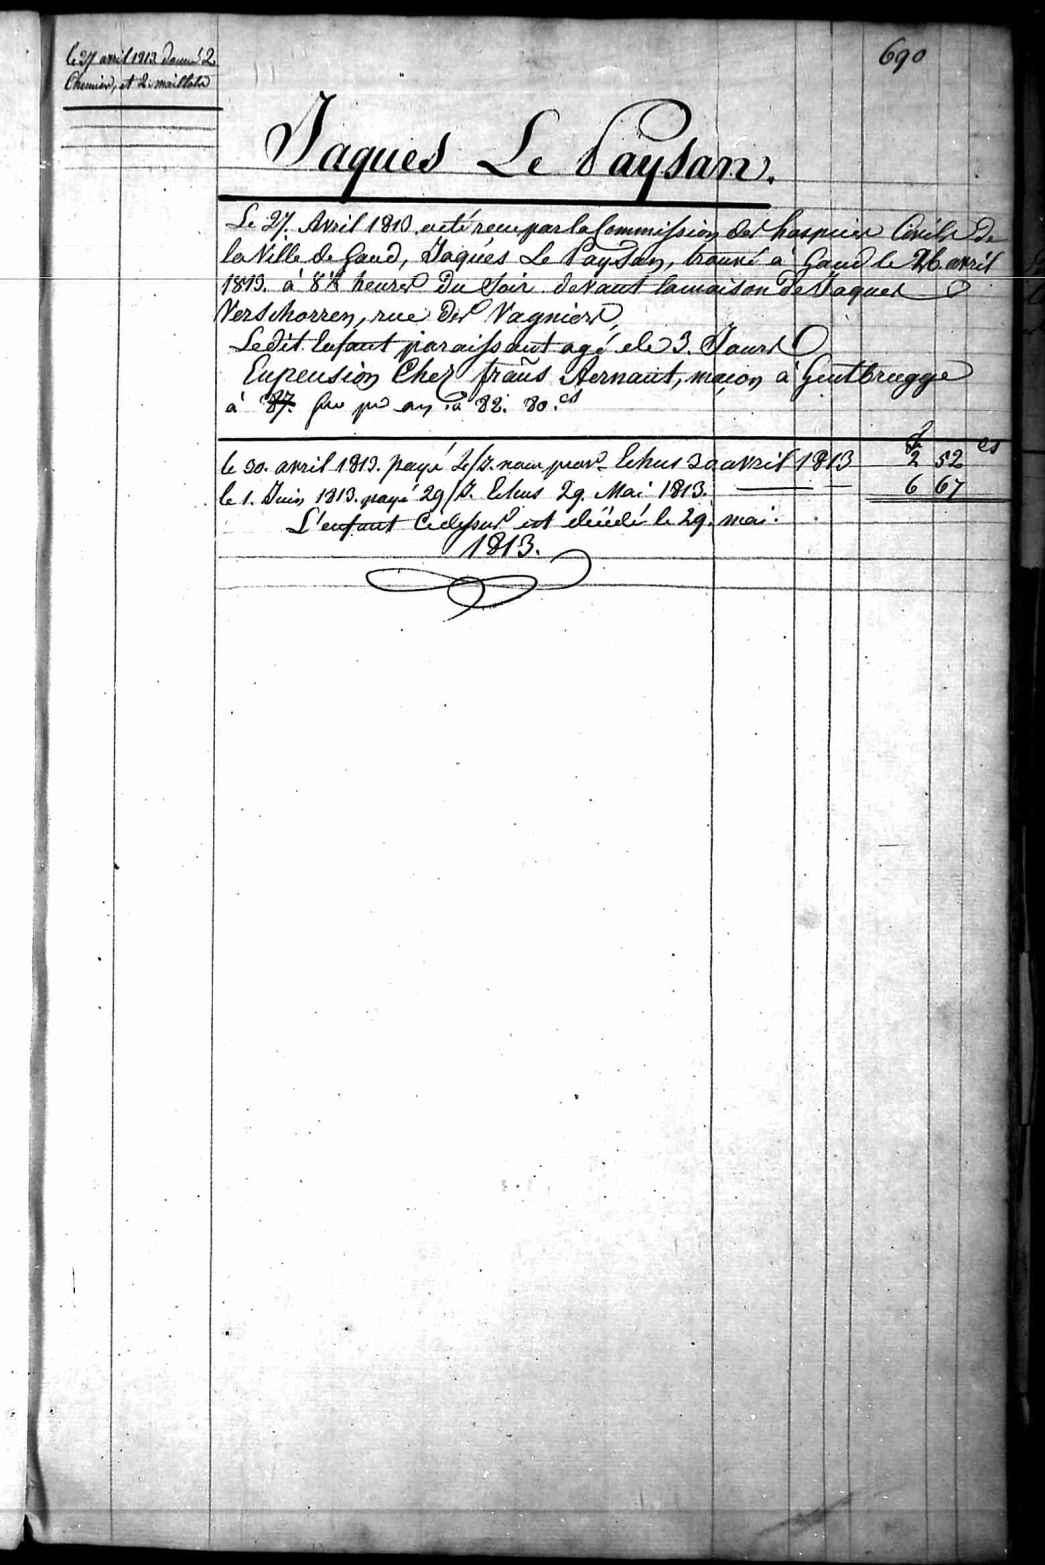 690
le 27 avril 1813 donné 2
Chemises, et 2 maillots
Jaques Le Paysan.
Le 27. Avril 1813. a eté recu par la Commission des hospices Civils de
la Ville de Gand, Jaques Le Paysan, trouvé a Gand le 26 avril
1813. à 8 1/2 heures Du Soir devant la maison de Jaques
Verschorren, rue Des Vagniers
Le dit Enfant paraissant agé de 3. Jours
En pension Chez frañs Aernaut, maçon à Gentbrugge
à 87. frs pr an à 82. 80. cs
f cs
le 30. avril 1813. payé 4/J. nour pour Echus 30 avril 1813 2 52
le 1. Juin 1813. payé 29/J. Echus 29. Mai 1813. 6 67
L'enfant Cidessus est décédé le 29. mai.
1813.